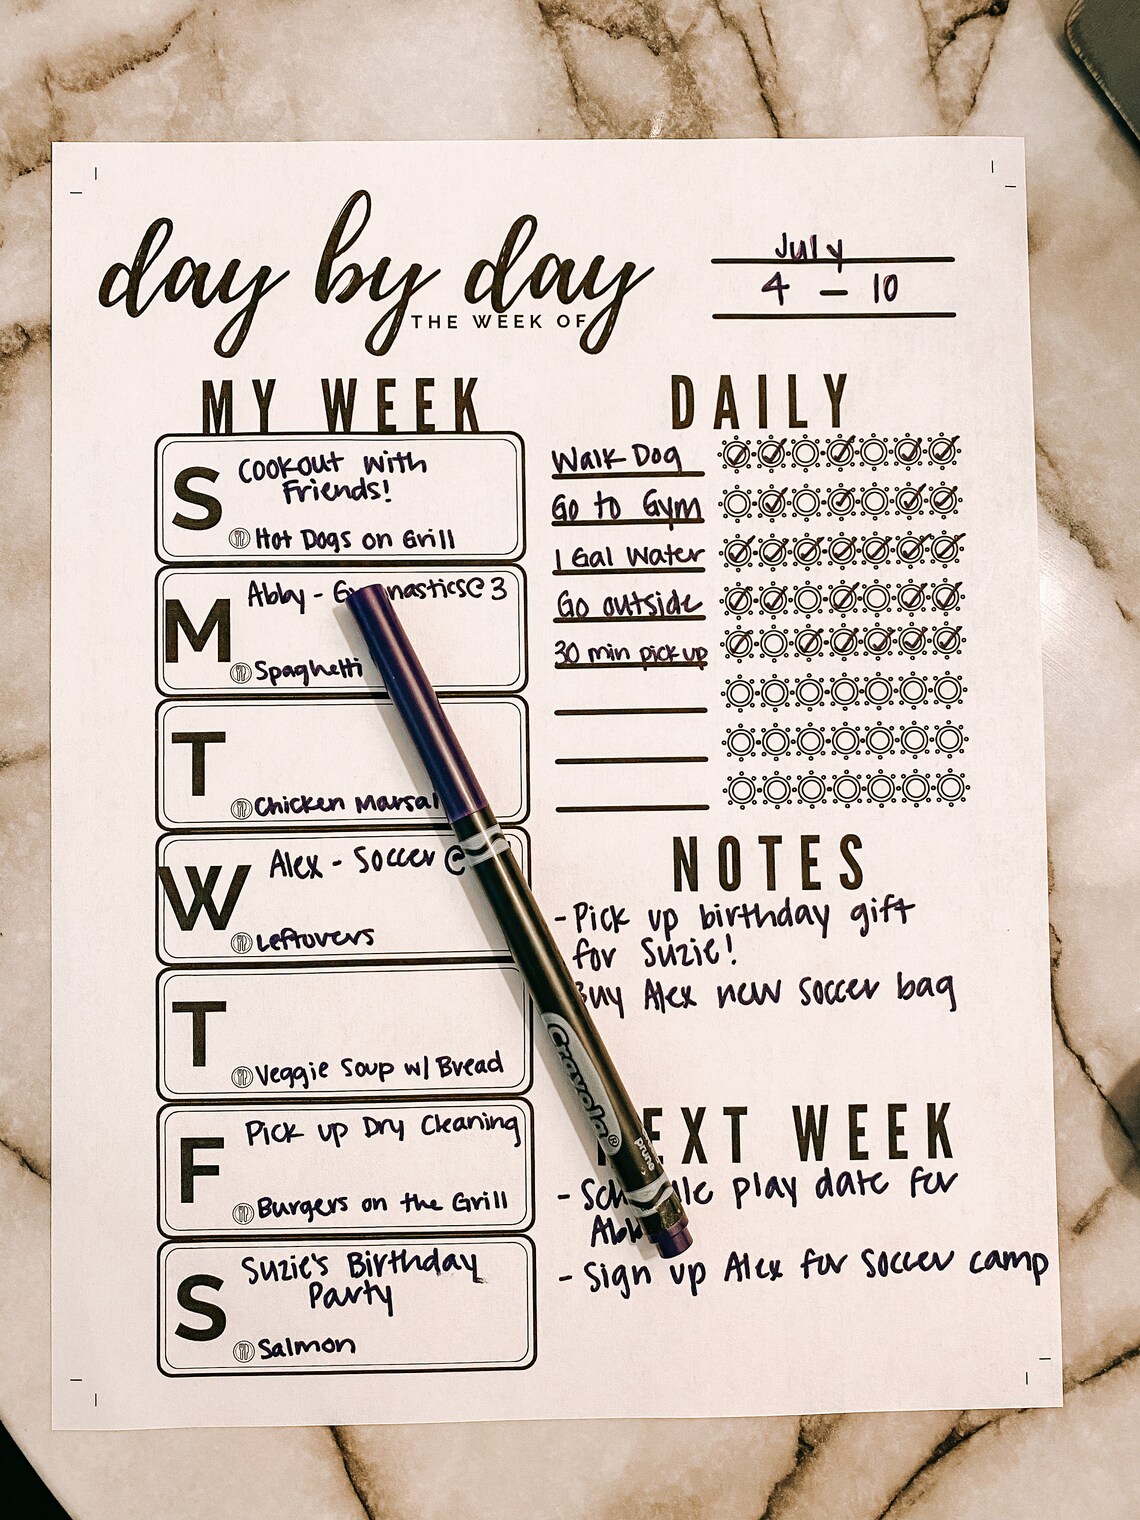 day by day
THE WEEK OF
July
4 - 10
MY WEEK
S
Cookout with
Friends!
Hot Dogs on Grill
M
Abby - @ 3
Spaghetti
T
Chicken
W
Alex - Soccer @
Leftovers
T
Veggie Soup w/ Bread
F
Pick up Dry Cleaning
Burgers on the Grill
S
Suzie's Birthday
Party
Salmon
DAILY
Walk Dog
Go to Gym
1 Gal Water
Go outside
30 min pick up
NOTES
- Pick up birthday gift
for Suzie!
Buy Alex new soccer bag
NEXT WEEK
- play date for
- Sign up Alex for soccer camp
Crayola®
prune